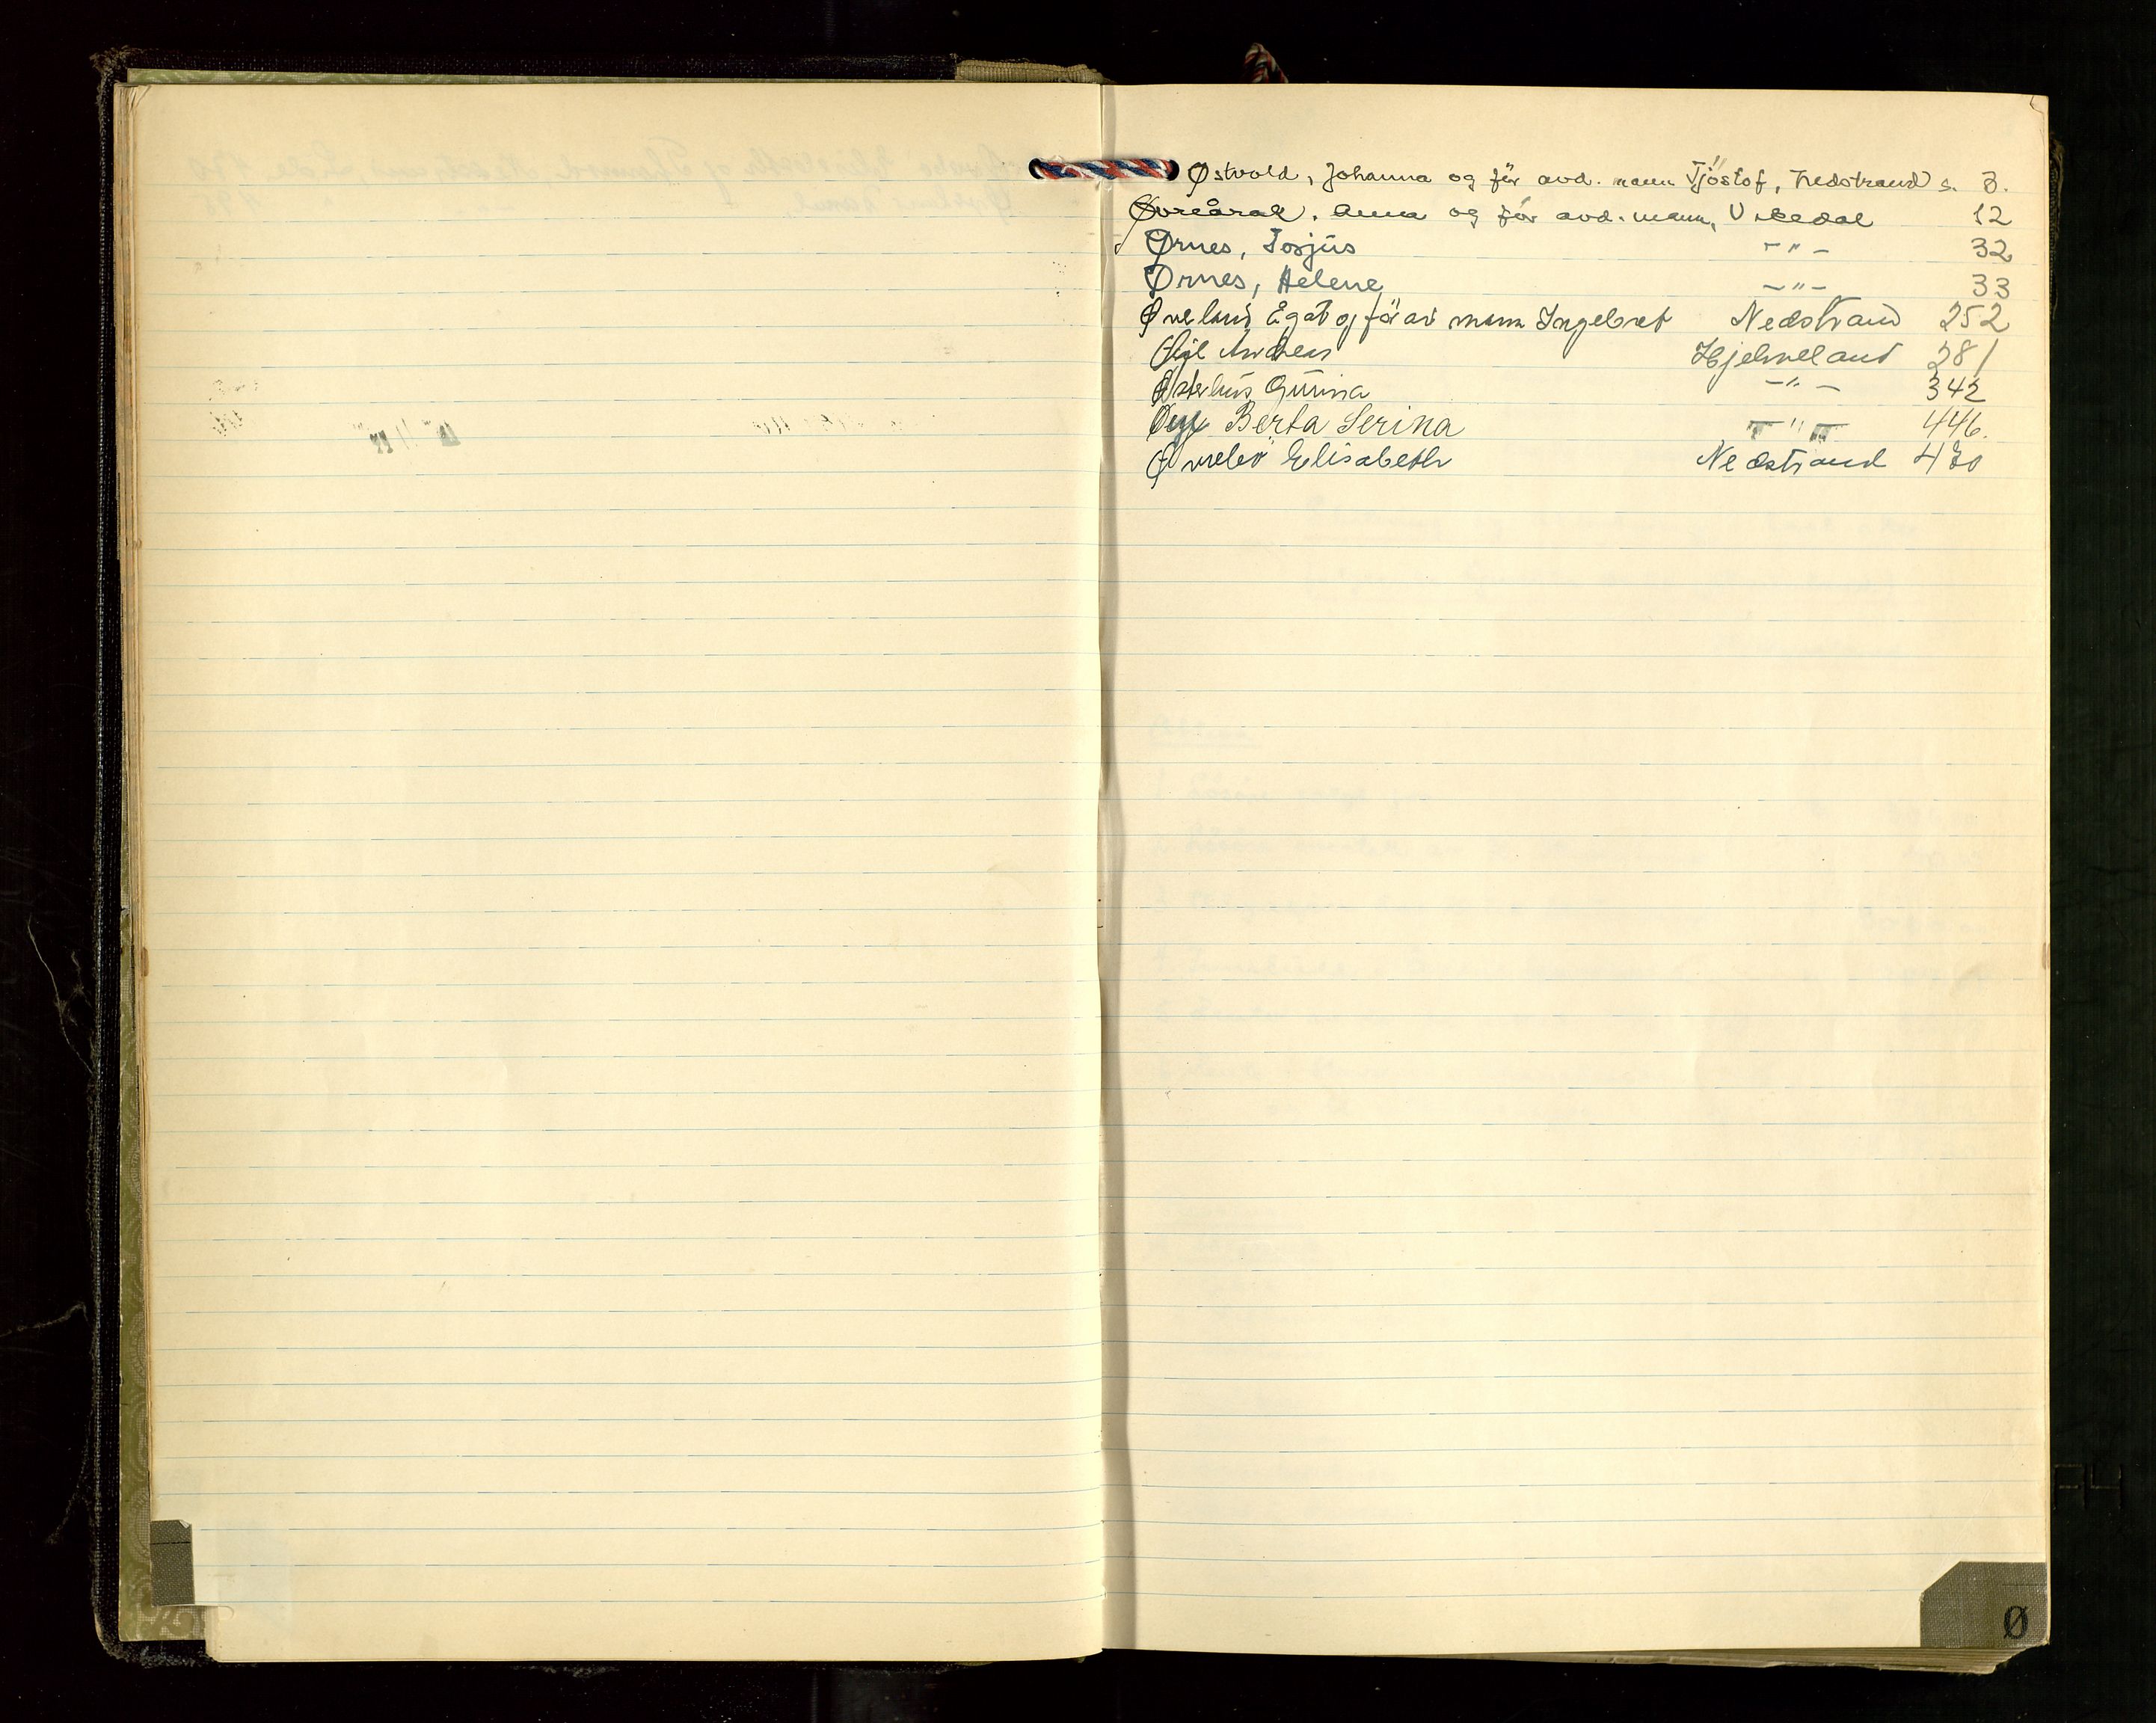 Østvold, Johanna og før avd. mann Tjøstof, Nedstrand s. 3.
Øvreåral, Anna og før avd. mann, Vikedal 12
Ørnes, Torjus -"- 32
Ørnes, Helene -"- 33
Øveland Ågat og før av mann Ingebret Nedstrand 252
Andreas Hjelmeland 281
Østerhus Gurina -"- 342
Øye Berta Serina -"- 446.
Øvrebø Elisabeth Nedstrand 470
Ø